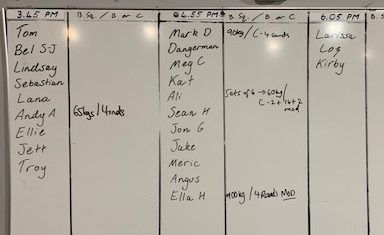 3.45 PM B.Sq. / B or C 4.55 PM B.Sq. / B or C 6.05 PM B.S
Tom Mark D 90kg / C-4 rounds Larissa
Bel SJ Dangerman Log
Lindsay Meg C Kirby
Sebastian Kat
Lana Ali Sets of 6 → 60kg /
C-2+
Andy A 65kgs / 4 rnds Sean H
Ellie Jon G
Jett Jake
Troy Meric
Angus
Ella H 4 Rounds MOD